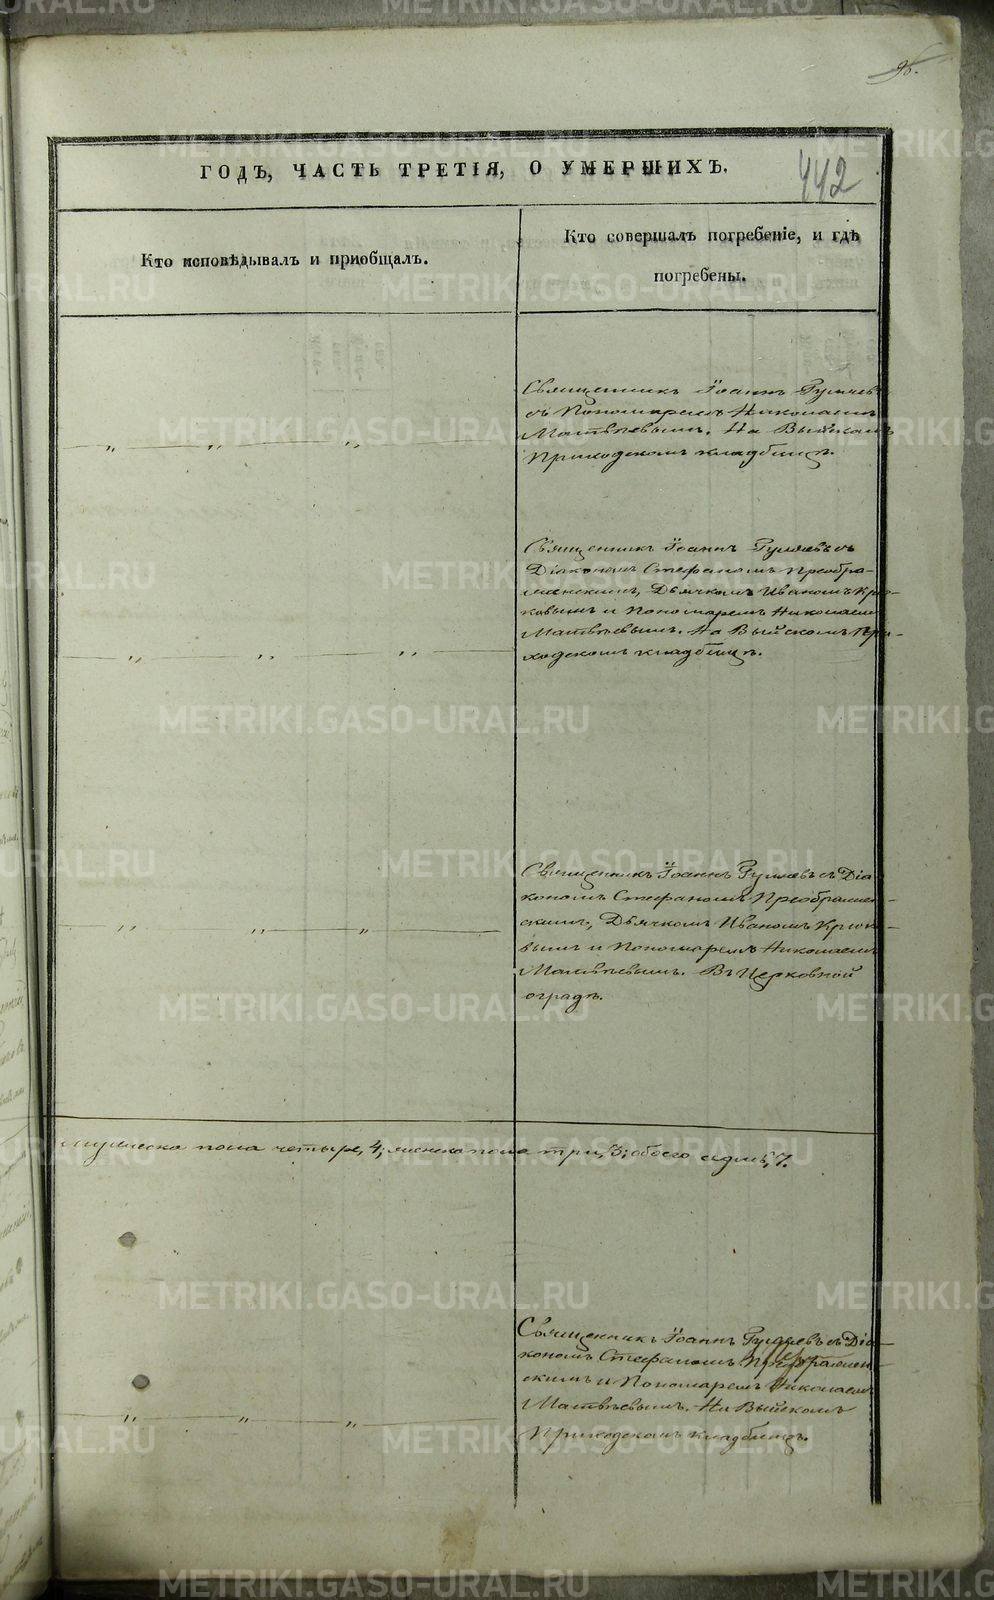 96.
442
ГОДЪ, ЧАСТЬ ТРЕТІЯ, О УМЕРШИХЪ.
Кто исповѣдывалъ и пріобщалъ.
Кто совершалъ погребеніе, и гдѣ
погребены.
Священникъ Іоаннъ Гуляевъ
съ Пономаремъ Николаемъ
Матвѣевымъ. На Выйскомъ
Приходскомъ кладбищѣ.
" " "
Священникъ Іоаннъ Гуляевъ съ
Діакономъ Стефаномъ Преобра-
женскимъ, Дьячкомъ Иваномъ Крю-
ковымъ и Пономаремъ Николаемъ
Матвѣевымъ. На Выйскомъ При-
ходскомъ кладбищѣ.
" " "
Священникъ Іоаннъ Гуляевъ съ Діа-
кономъ Стефаномъ Преображен-
скимъ, Дьячкомъ Иваномъ Крюко-
вымъ и Пономаремъ Николаемъ
Матвѣевымъ. Въ Церковной
оградѣ.
" " "
мужеска пола четыре, 4; женска пола три, 3; обоего седмь, 7.
Священникъ Іоаннъ Гуляевъ съ Діа-
кономъ Стефаномъ Преображен-
скимъ и Пономаремъ Николаемъ
Матвѣевымъ. На Выйскомъ
Приходскомъ кладбищѣ.
" " "
METRIKI.GASO-URAL.RU